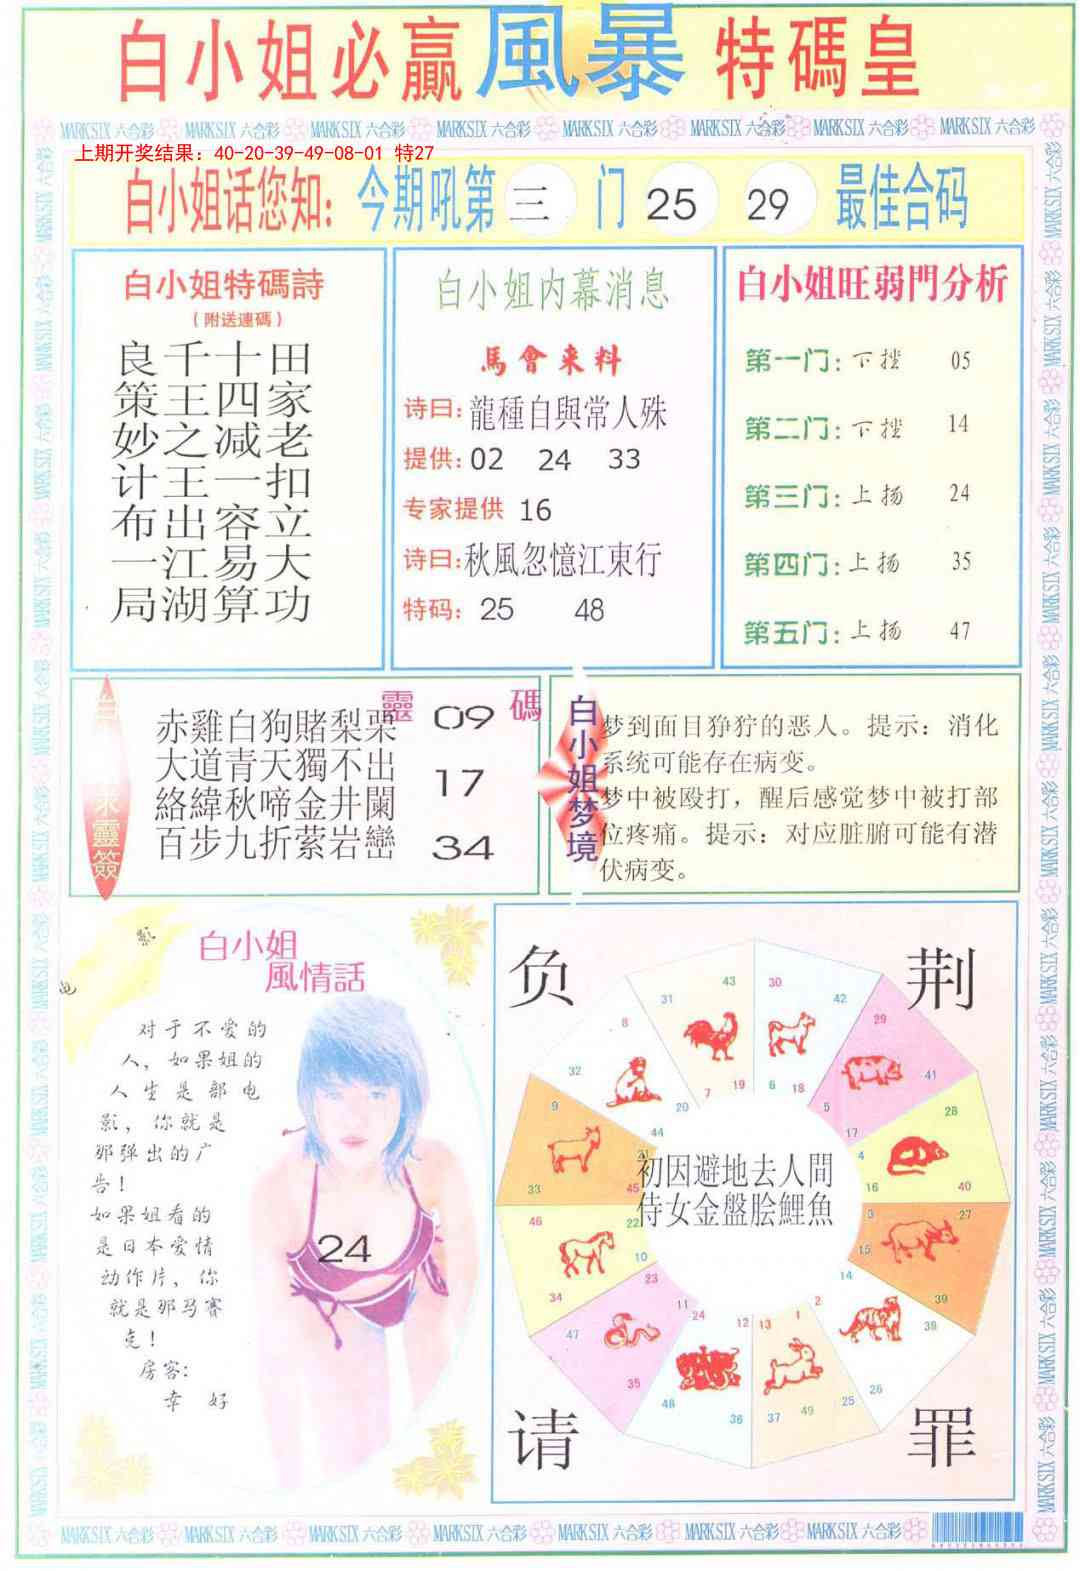 白小姐必赢風暴特碼皇
MARKSIX 六合彩 MARKSIX 六合彩 MARKSIX 六合彩 MARKSIX 六合彩 MARKSIX 六合彩 MARKSIX 六合彩 MARKSIX 六合彩 MARKSIX 六合彩
上期开奖结果：40-20-39-49-08-01 特27
白小姐话您知：今期吼第 三 门 25 29 最佳合码
白小姐特碼詩
（附送連碼）
良千十田
策王四家
妙之减老
计王一扣
布出容立
一江易大
局湖算功
白小姐内幕消息
馬會来料
诗曰：龍種自與常人殊
提供：02 24 33
专家提供 16
诗曰：秋風忽憶江東行
特码：25 48
白小姐旺弱門分析
第一门：下挫 05
第二门：下挫 14
第三门：上扬 24
第四门：上扬 35
第五门：上扬 47
求靈簽
靈碼
赤雞白狗賭梨栗
大道青天獨不出
絡緯秋啼金井闌
百步九折萦岩巒
09
17
34
白小姐梦境
梦到面目狰狞的恶人。提示：消化
系统可能存在病变。
梦中被殴打，醒后感觉梦中被打部
位疼痛。提示：对应脏腑可能有潜
伏病变。
白小姐
風情話
对于不爱的
人，如果姐的
人生是部电
影，你就是
那弹出的广
告！
如果姐看的
是日本爱情
动作片，你
就是那马赛
克！
房客：
幸 好
24
负 荆
请 罪
初因避地去人間
侍女金盤脍鯉魚
31 43 7 19
30 42 6 18
29 41 5 17
28 40 4 16
27 39 3 15
38 14 2 26
1 13 25 37 49
12 24 36 48
11 23 35 47
10 22 34 46
9 21 33 45
8 20 32 44
MARKSIX 六合彩 MARKSIX 六合彩 MARKSIX 六合彩 MARKSIX 六合彩 MARKSIX 六合彩 MARKSIX 六合彩 MARKSIX 六合彩